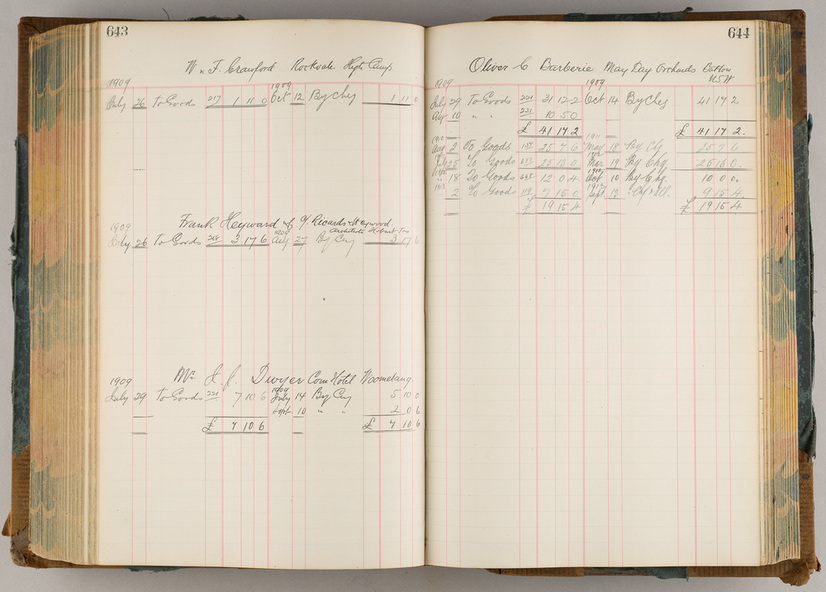 643
W. F. Crawford Rockvale Hyde Camp
1909 1909
July 26 To Goods 217 1 11 0 Oct 12 By Chq 1 11 0
Frank Heyward Ricards Heywood
Architects Hobart Tas
1909 1909
July 26 To Goods 3 17 6 Aug 27 By Chq 3 17 6
Mr J. J. Dwyer Com Hotel Woomelang
1909 1909
July 29 To Goods 221 7 10 6 July 14 By Chq 5 10 0
Sept 10 " " 2 0 6
£ 7 10 6 £ 7 10 6
644
Oliver C Barberie May Day Orchards
NSW
1909 1909
July 29 To Goods 221 31 12 2 Oct 14 By Chq 41 17 2
Aug 10 " " 10 5 0
£ 41 17 2 £ 41 17 2.
Aug 2 To Goods 25 7 6 May 18 By Chq 25 7 6
25 To Goods 25 16 0 Mar 19 By Chq 25 16 0.
18 To Goods 12 0 4 Oct 10 By Chq 10 0 0.
2 To Goods 7 15 0 Sept 13 9 15 4
£ 19 15 4 £ 19 15 4